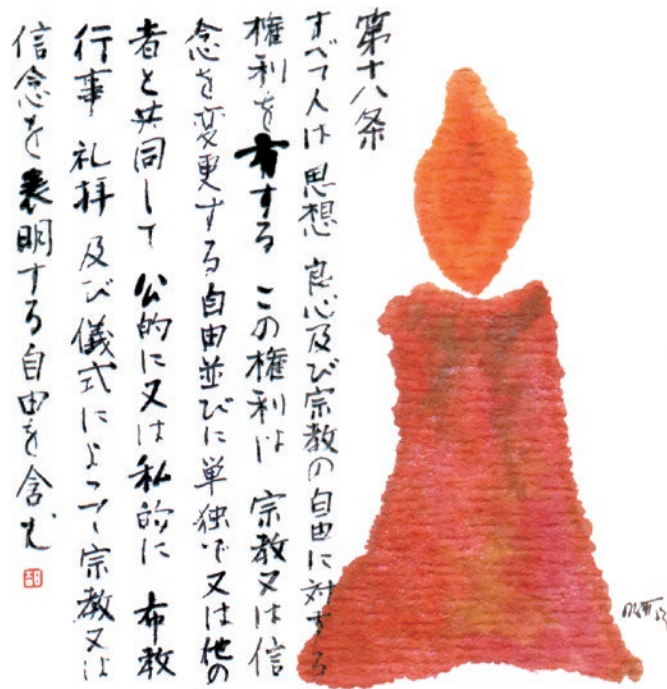 第十八条
すべて人は 思想 良心及び宗教の自由に対する
権利を有する この権利は 宗教又は信
念を変更する自由並びに単独で又は他の
者と共同して 公的に又は私的に 布教
行事 礼拝 及び儀式によって宗教又は
信念を表明する自由を含む